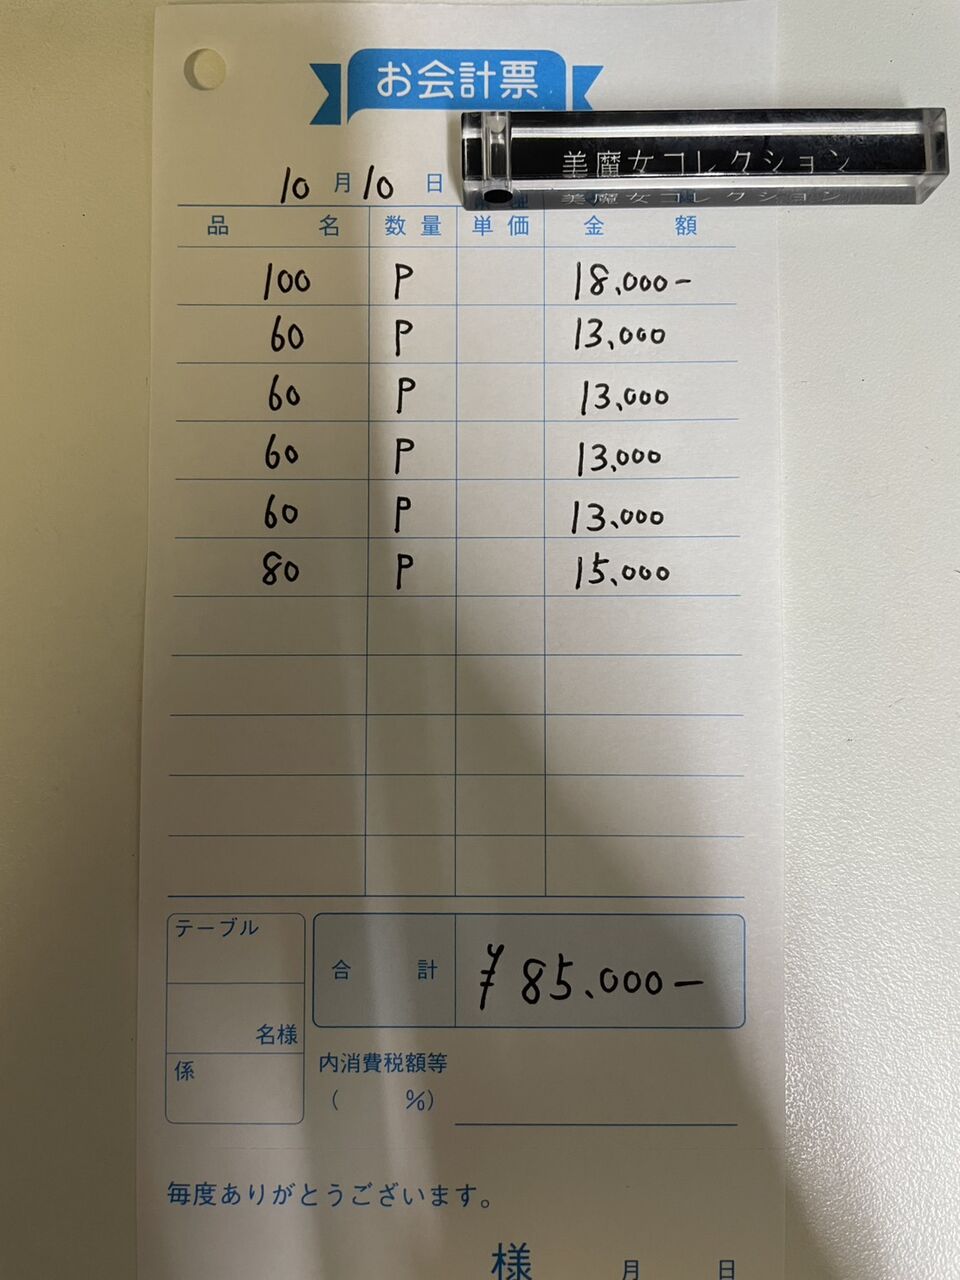 お会計票
美魔女コレクション
美魔女コレクション
10月10日
品名 数量 単価 金額
100 P 18,000-
60 P 13,000
60 P 13,000
60 P 13,000
60 P 13,000
80 P 15,000
テーブル
合計 ¥85,000-
名様
係
内消費税額等
( %)
毎度ありがとうございます。
様 月 日